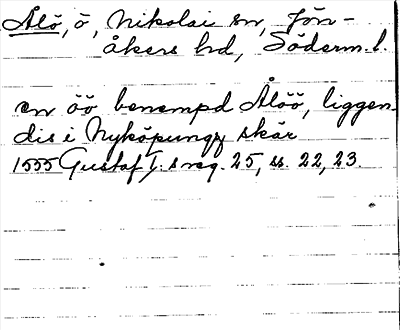 Ålö, ö, Nikolai sn, Jön-
åkers hd, Söderm. l.
en öö benempd Ålöö, liggen-
dis i Nyköpungx skär
1555 Gustaf I:s reg. 25, ss. 22, 23.